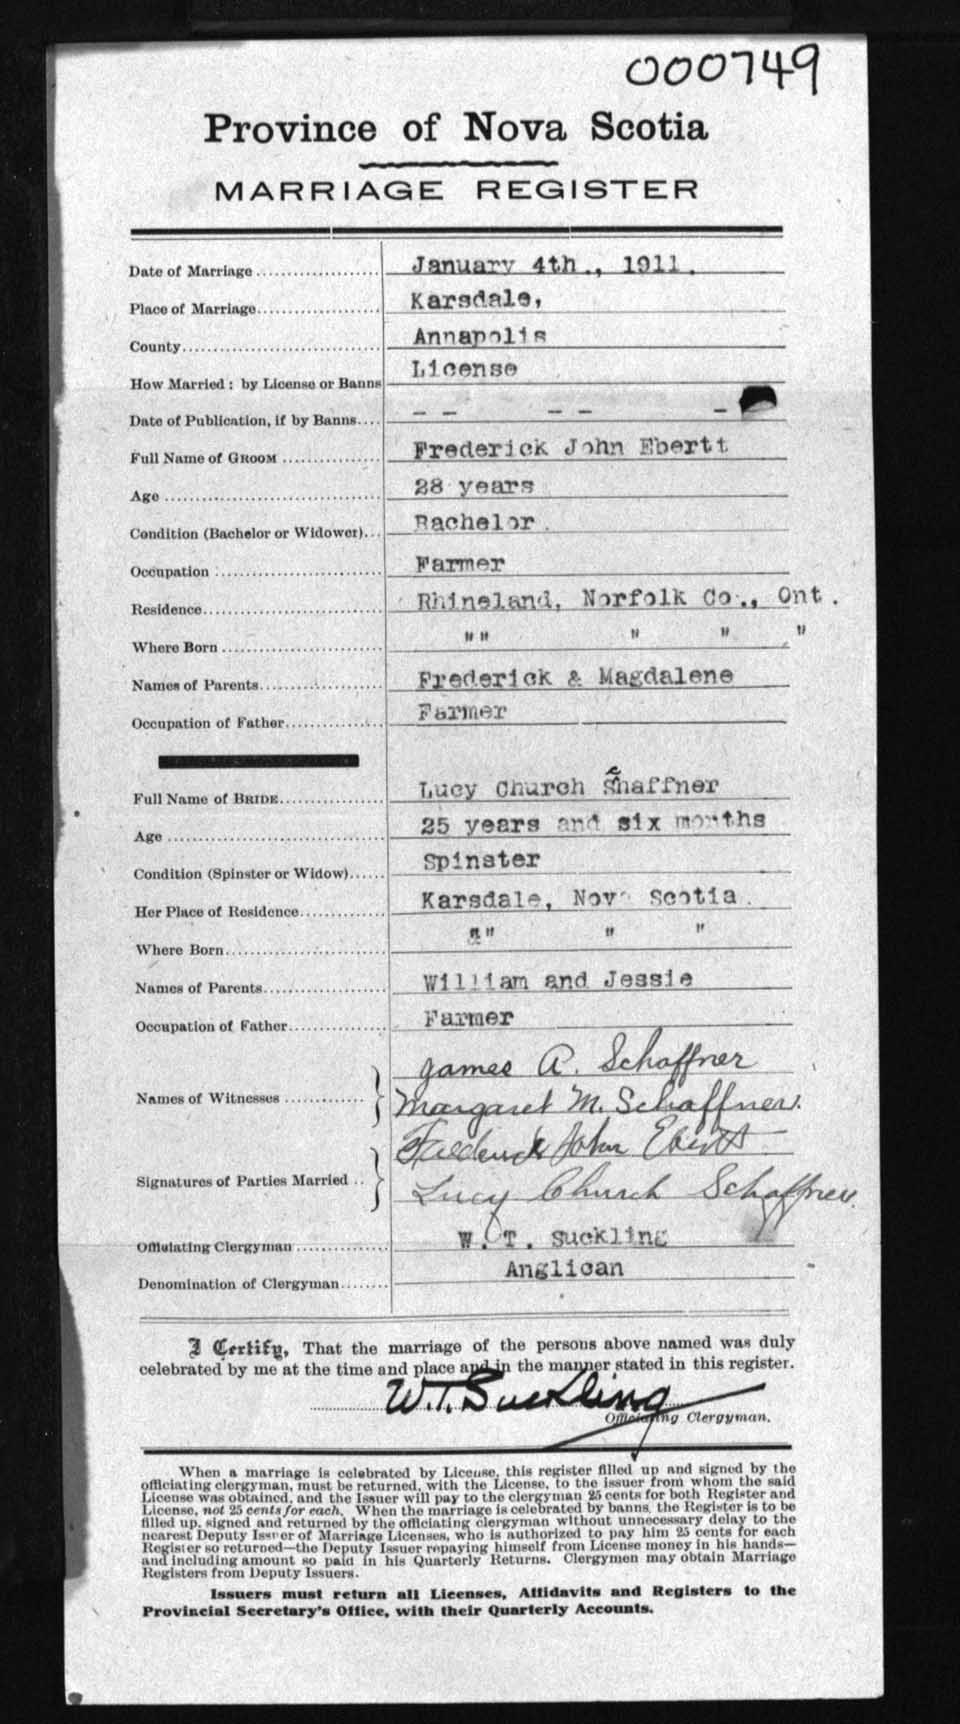 000749
Province of Nova Scotia
MARRIAGE REGISTER
Date of Marriage.................... January 4th., 1911.
Place of Marriage.................... Karsdale,
County................................ Annapolis
How Married: by License or Banns License
Date of Publication, if by Banns.... -- -- -
Full Name of GROOM ................ Frederick John Ebertt
Age .................................. 28 years
Condition (Bachelor or Widower)... Bachelor.
Occupation ........................... Farmer
Residence............................. Rhineland, Norfolk Co., Ont.
Where Born .......................... "" " " "
Names of Parents.................... Frederick & Magdalene
Occupation of Father................ Farmer
Full Name of BRIDE................. Lucy Church Schaffner
Age .................................. 25 years and six months
Condition (Spinster or Widow)...... Spinster
Her Place of Residence.............. Karsdale, Nova Scotia.
Where Born.......................... "" " "
Names of Parents.................... William and Jessie
Occupation of Father................ Farmer
James A. Schaffner
Names of Witnesses ............. Margaret M. Schaffner.
Frederick John Ebertt
Signatures of Parties Married .. Lucy Church Schaffner.
Officiating Clergyman .............. W. T. Suckling
Denomination of Clergyman........ Anglican
I Certify, That the marriage of the persons above named was duly
celebrated by me at the time and place and in the manner stated in this register.
W.T. Suckling
Officiating Clergyman.
When a marriage is celebrated by License, this register filled up and signed by the
officiating clergyman, must be returned, with the License, to the issuer from whom the said
License was obtained, and the Issuer will pay to the clergyman 25 cents for both Register and
License, not 25 cents for each. When the marriage is celebrated by banns, the Register is to be
filled up, signed and returned by the officiating clergyman without unnecessary delay to the
nearest Deputy Issuer of Marriage Licenses, who is authorized to pay him 25 cents for each
Register so returned—the Deputy Issuer repaying himself from License money in his hands—
and including amount so paid in his Quarterly Returns. Clergymen may obtain Marriage
Registers from Deputy Issuers.
Issuers must return all Licenses, Affidavits and Registers to the
Provincial Secretary's Office, with their Quarterly Accounts.